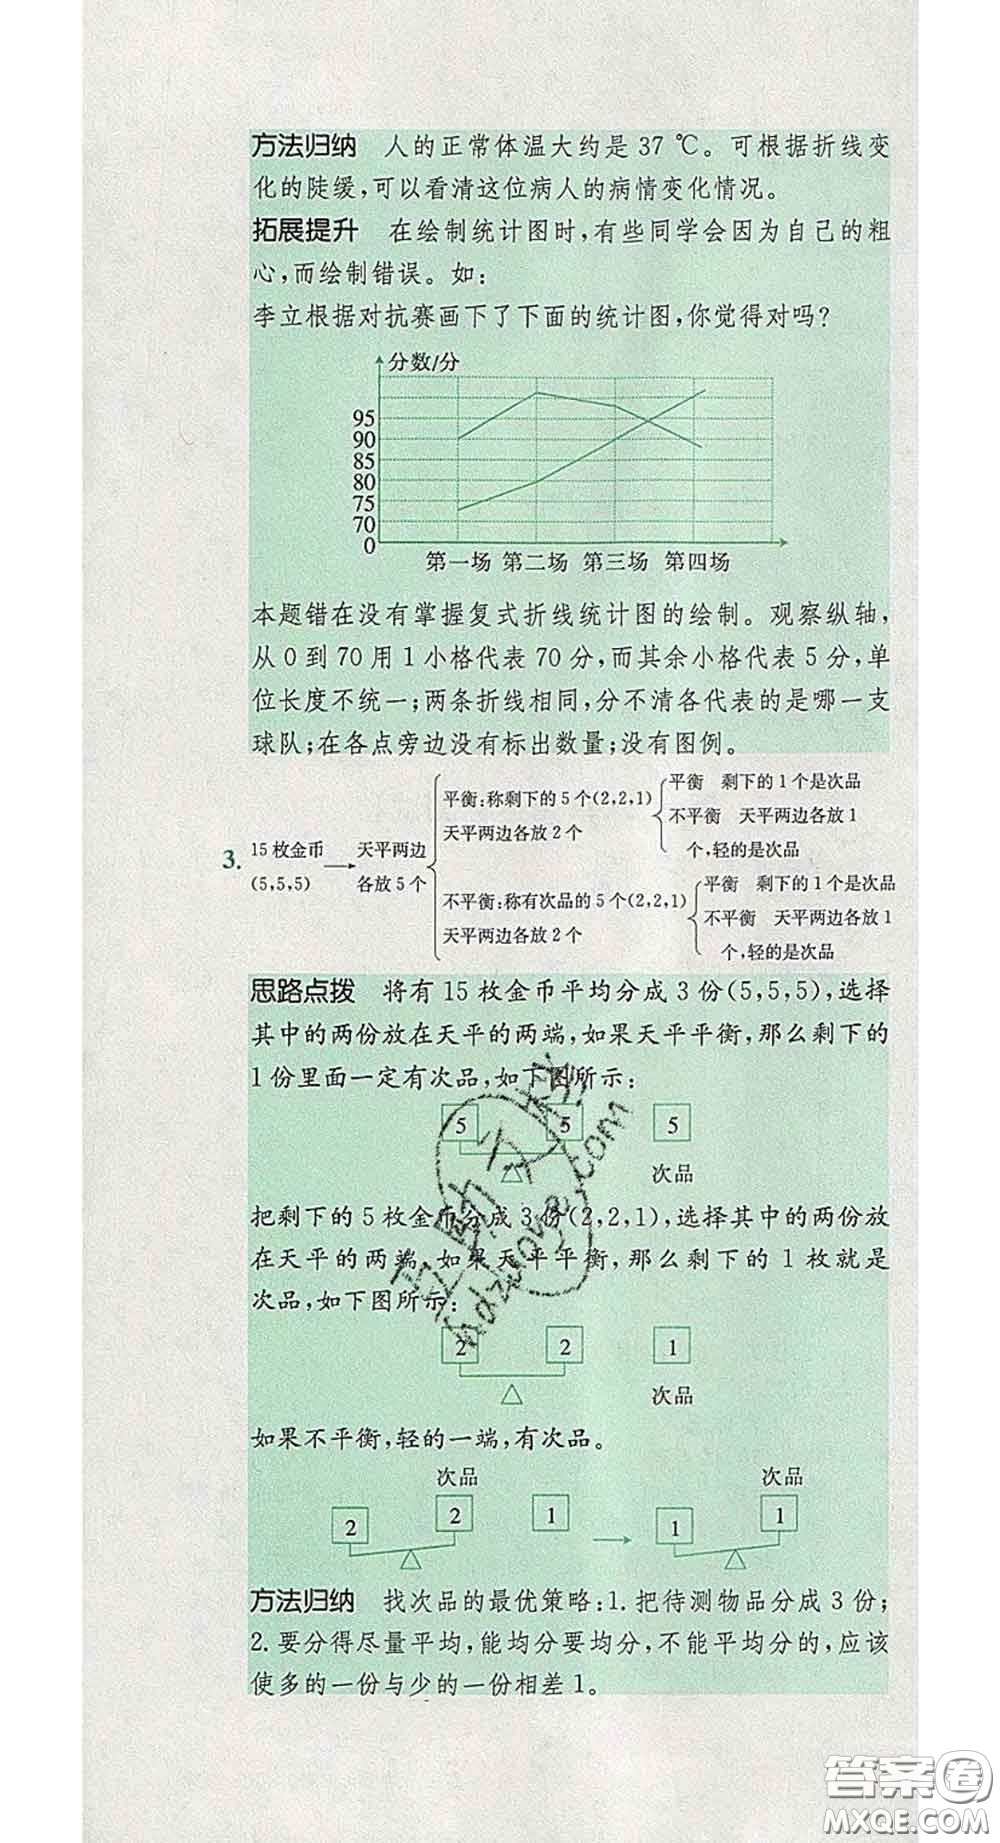 方法归纳 人的正常体温大约是 37 ℃。可根据折线变
化的陡缓,可以看清这位病人的病情变化情况。
拓展提升 在绘制统计图时,有些同学会因为自己的粗
心,而绘制错误。如:
李立根据对抗赛画下了下面的统计图,你觉得对吗?
分数/分
95
90
85
80
75
70
0
第一场 第二场 第三场 第四场
本题错在没有掌握复式折线统计图的绘制。观察纵轴,
从 0 到 70 用 1 小格代表 70 分,而其余小格代表 5 分,单
位长度不统一;两条折线相同,分不清各代表的是哪一支
球队;在各点旁边没有标出数量;没有图例。
3.
15 枚金币
(5,5,5)
天平两边
各放 5 个
平衡:称剩下的 5 个(2,2,1)
天平两边各放 2 个
平衡 剩下的 1 个是次品
不平衡 天平两边各放 1
个,轻的是次品
不平衡:称有次品的 5 个(2,2,1)
天平两边各放 2 个
平衡 剩下的 1 个是次品
不平衡 天平两边各放 1
个,轻的是次品
思路点拨 将有 15 枚金币平均分成 3 份(5,5,5),选择
其中的两份放在天平的两端,如果天平平衡,那么剩下的
1 份里面一定有次品,如下图所示:
5 5 5
次品
把剩下的 5 枚金币分成 3 份(2,2,1),选择其中的两份放
在天平的两端,如果天平平衡,那么剩下的 1 枚就是
次品,如下图所示:
2 2 1
次品
如果不平衡,轻的一端,有次品。
次品 次品
2 2 1 1 1
方法归纳 找次品的最优策略:1. 把待测物品分成 3 份;
2. 要分得尽量平均,能均分要均分,不能平均分的,应该
使多的一份与少的一份相差 1。
答案卷
MXQE.COM